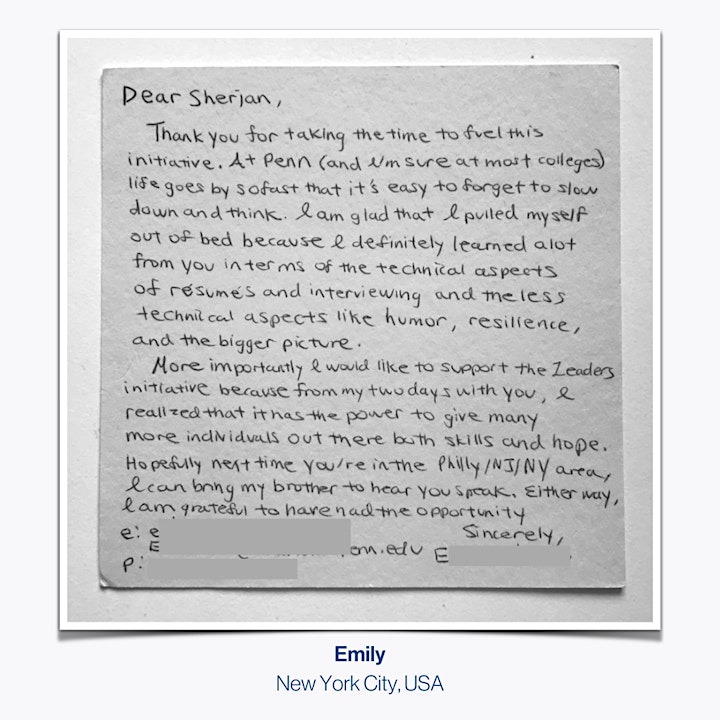 Dear Sherjan,
Thank you for taking the time to fuel this
initiative. At Penn (and I'm sure at most colleges)
life goes by so fast that it's easy to forget to slow
down and think. I am glad that I pulled myself
out of bed because I definitely learned alot
from you in terms of the technical aspects
of résumés and interviewing and the less
technical aspects like humor, resilience,
and the bigger picture.
More importantly I would like to support the Leaders
initiative because from my two days with you, I
realized that it has the power to give many
more individuals out there both skills and hope.
Hopefully next time you're in the Philly/NJ/NY area,
I can bring my brother to hear you speak. Either way,
I am grateful to have had the opportunity
e: e
Sincerely,
E enn.edu E
p:
Emily
New York City, USA